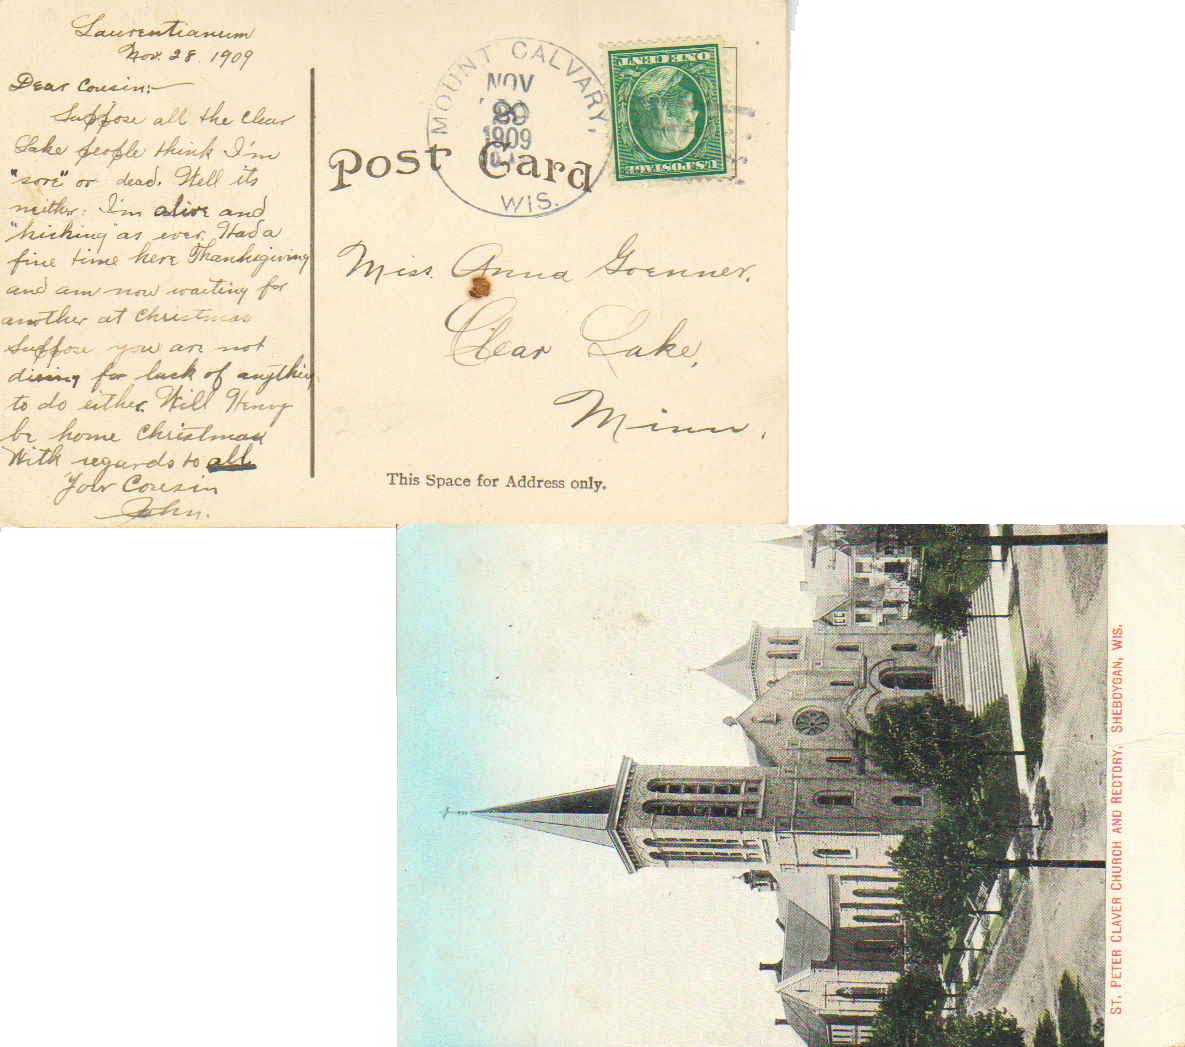 Laurentianum
Nov. 28. 1909
Dear Cousin:-
Suppose all the Clear
Lake people think I'm
"sore" or dead. Well its
neither: I'm alive and
"kicking" as ever. Had a
fine time here Thanksgiving
and am now waiting for
another at Christmas
Suppose you are not
dieing for lack of anything
to do either. Will Henry
be home Christmas
With regards to all
Your Cousin
John.
MOUNT CALVARY,
NOV
29
1909
WIS.
ONE CENT
U.S. POSTAGE
Post Card
Miss. Anna Goenner,
Clear Lake,
Minn.
This Space for Address only.
ST. PETER CLAVER CHURCH AND RECTORY, SHEBOYGAN, WIS.